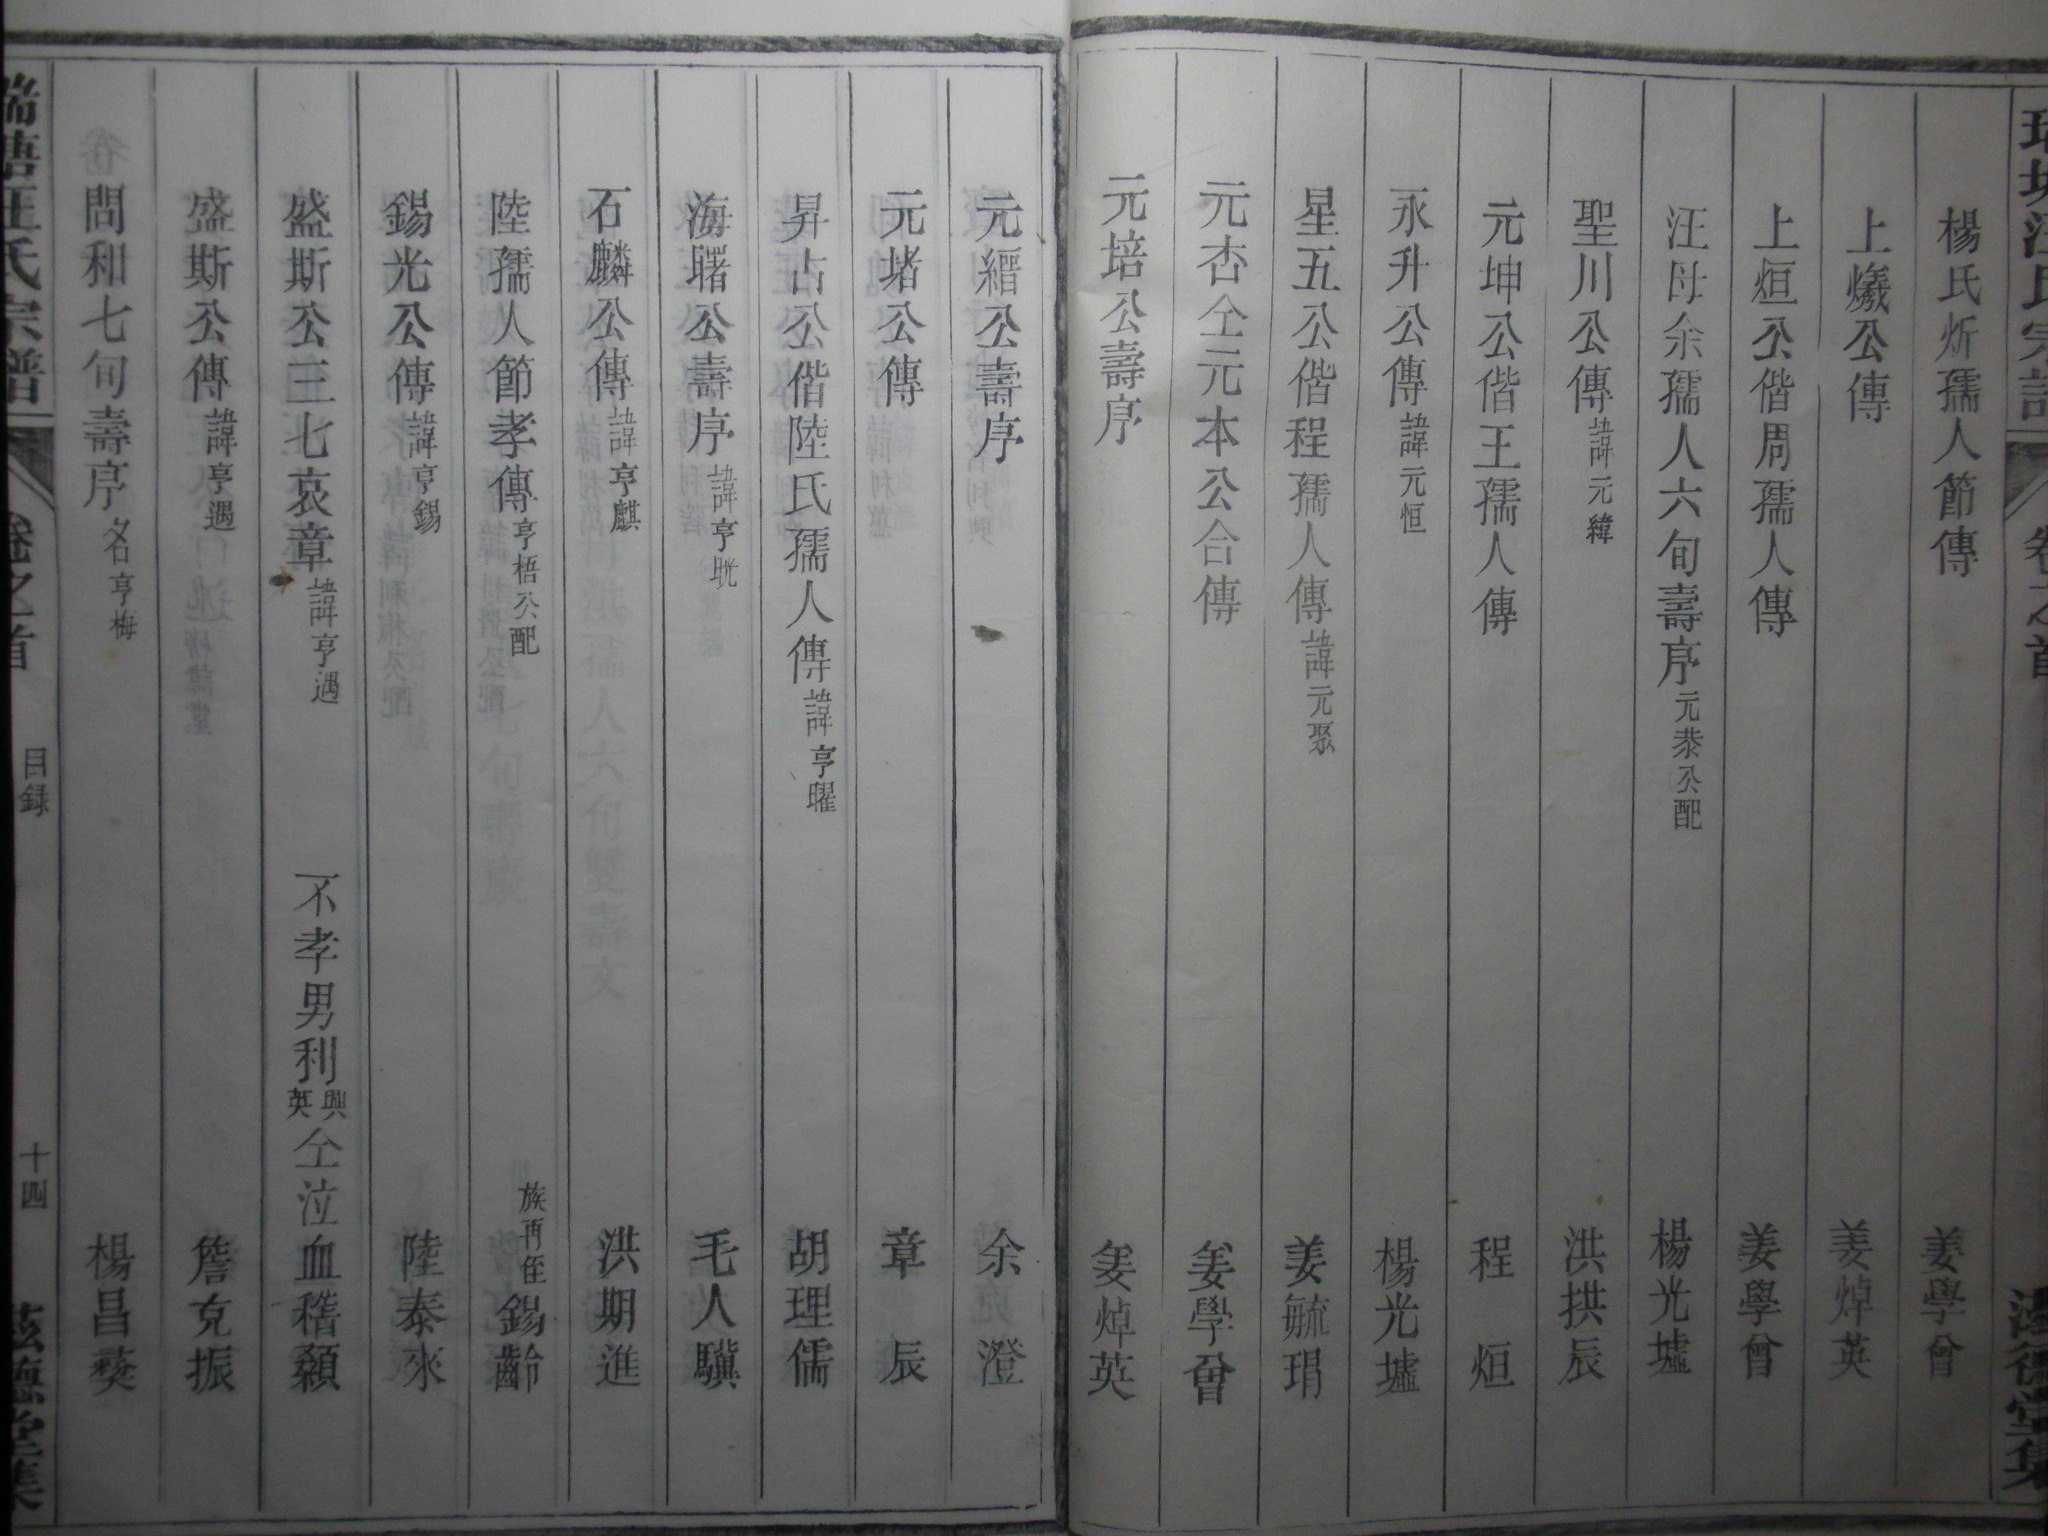 汪氏宗譜
卷之首
楊氏炘孺人節傳 姜學曾
上爔公傳 姜焯英
上烜公偕周孺人傳 姜學曾
汪母余孺人六旬壽序 元恭公配 楊光墟
聖川公傳 諱元緯 洪拱辰
元坤公偕王孺人傳 程烜
永升公傳 諱元恒 楊光墟
星五公偕程孺人傳 諱元聚 姜毓琄
元杏仝元本公合傳 姜學曾
元培公壽序 姜焯英
元縉公壽序 余澄
元堵公傳 章辰
昇占公偕陸氏孺人傳 諱亨曜 胡理儒
海曙公壽序 諱亨晄 毛人驥
石麟公傳 諱亨麒 洪期進
陸孺人節孝傳 亨梧公配 族再侄錫齡
錫光公傳 諱亨錫 陸泰來
盛斯公三七哀章 諱亨遇 不孝男利興英仝泣血稽顙
盛斯公傳 諱亨遇 詹克振
問和七旬壽序 名亨梅 楊昌燹
汪氏宗譜
卷之首
目録
十四
德堂集